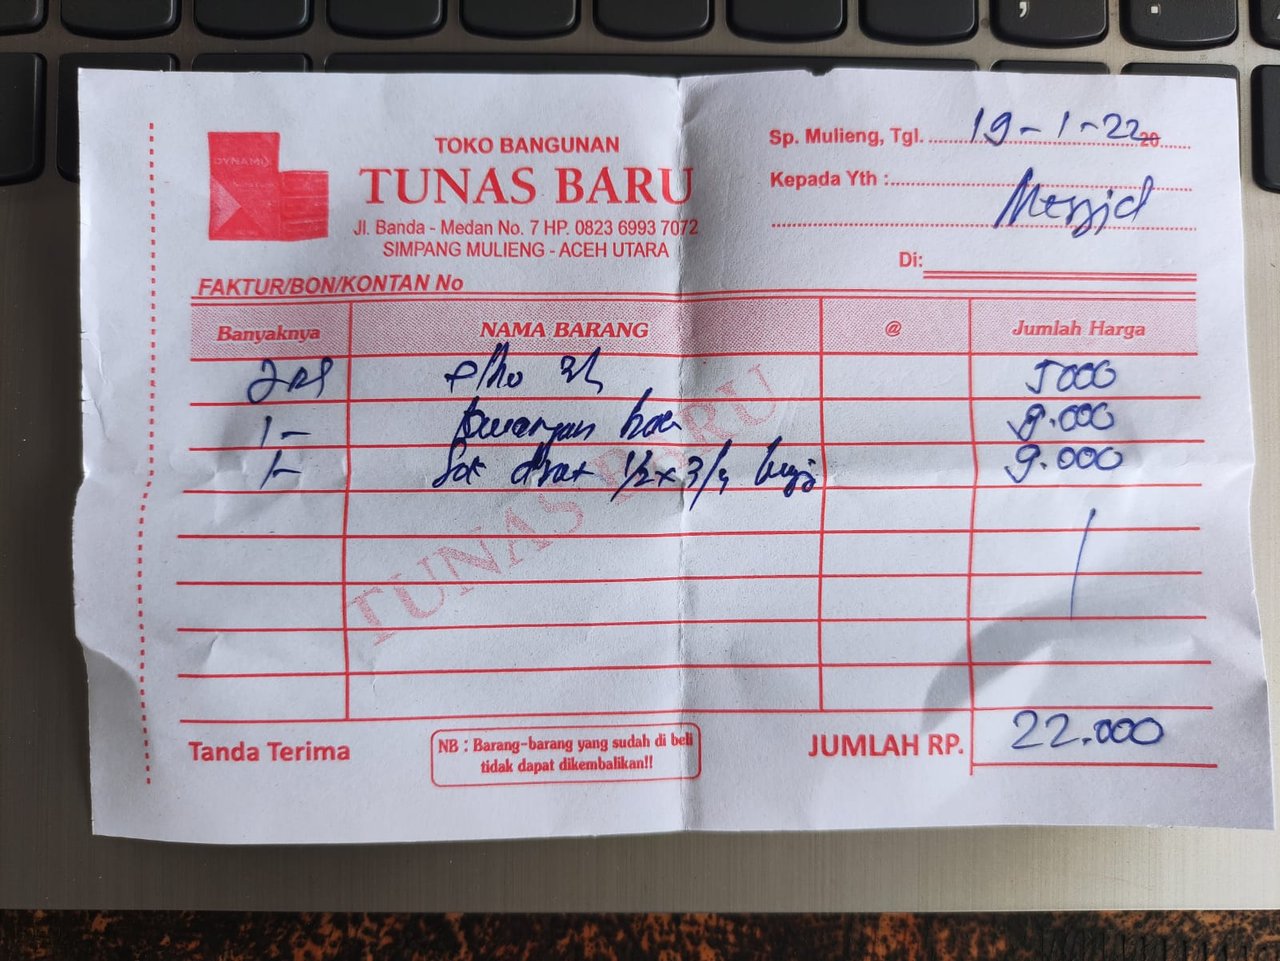 DYNAMIX
TOKO BANGUNAN
TUNAS BARU
Jl. Banda - Medan No. 7 HP. 0823 6993 7072
SIMPANG MULIENG - ACEH UTARA
Sp. Mulieng, Tgl. 19-1-22 20
Kepada Yth :
Mesjid
Di:
FAKTUR/BON/KONTAN No
Banyaknya NAMA BARANG @ Jumlah Harga
5000
1 - 9.000
1 - Sok drat 1/2 x 3/4 9.000
TUNAS BARU
Tanda Terima
NB : Barang-barang yang sudah di beli
tidak dapat dikembalikan!!
JUMLAH RP. 22.000